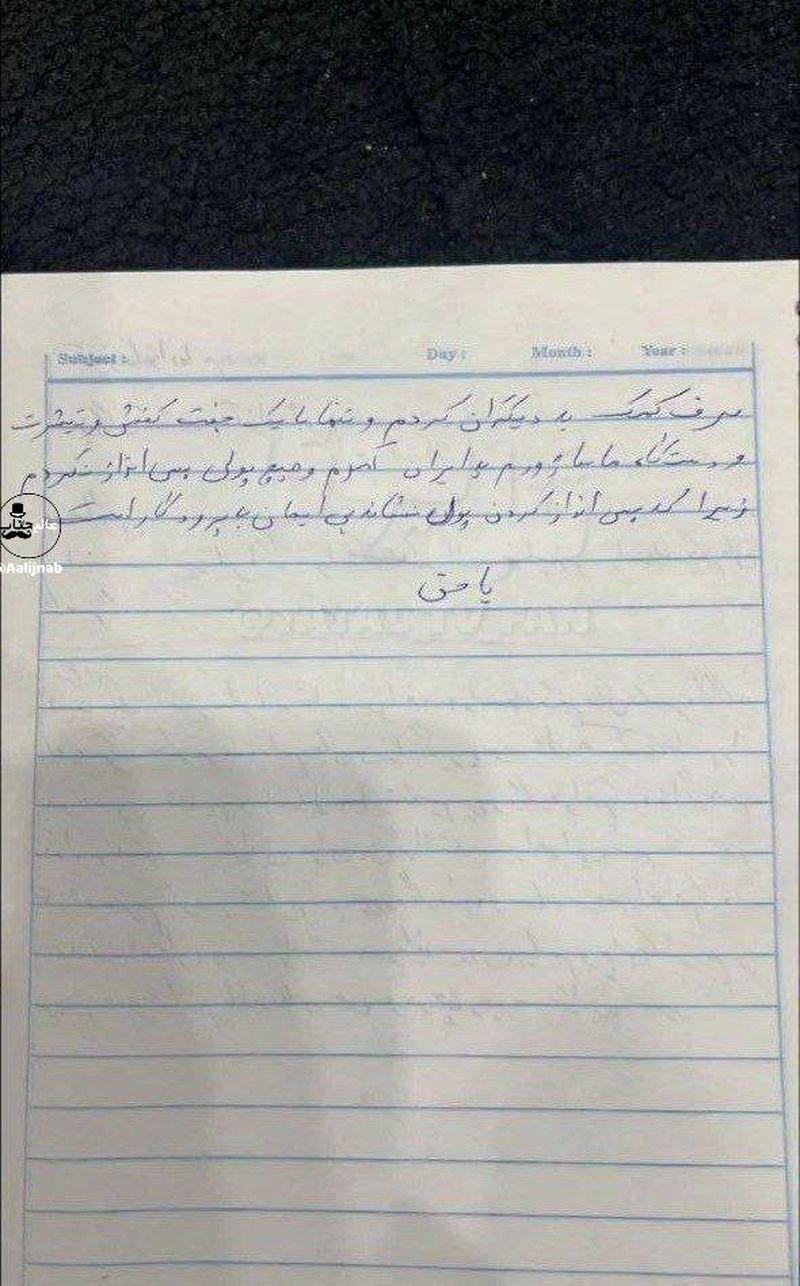 Subject :
Day :
Month :
Year :
صرف کمک به دیگران کردم و تنها با یک جفت کفش و تیشرت
و دستگاه ماساژورم به ایران آمدم و هیچ پولی پس انداز نکردم
زیرا که پس انداز کردن پول نشانه بی ایمانی به پروردگار است
یا حق
عالیجناب
@Aalijnab